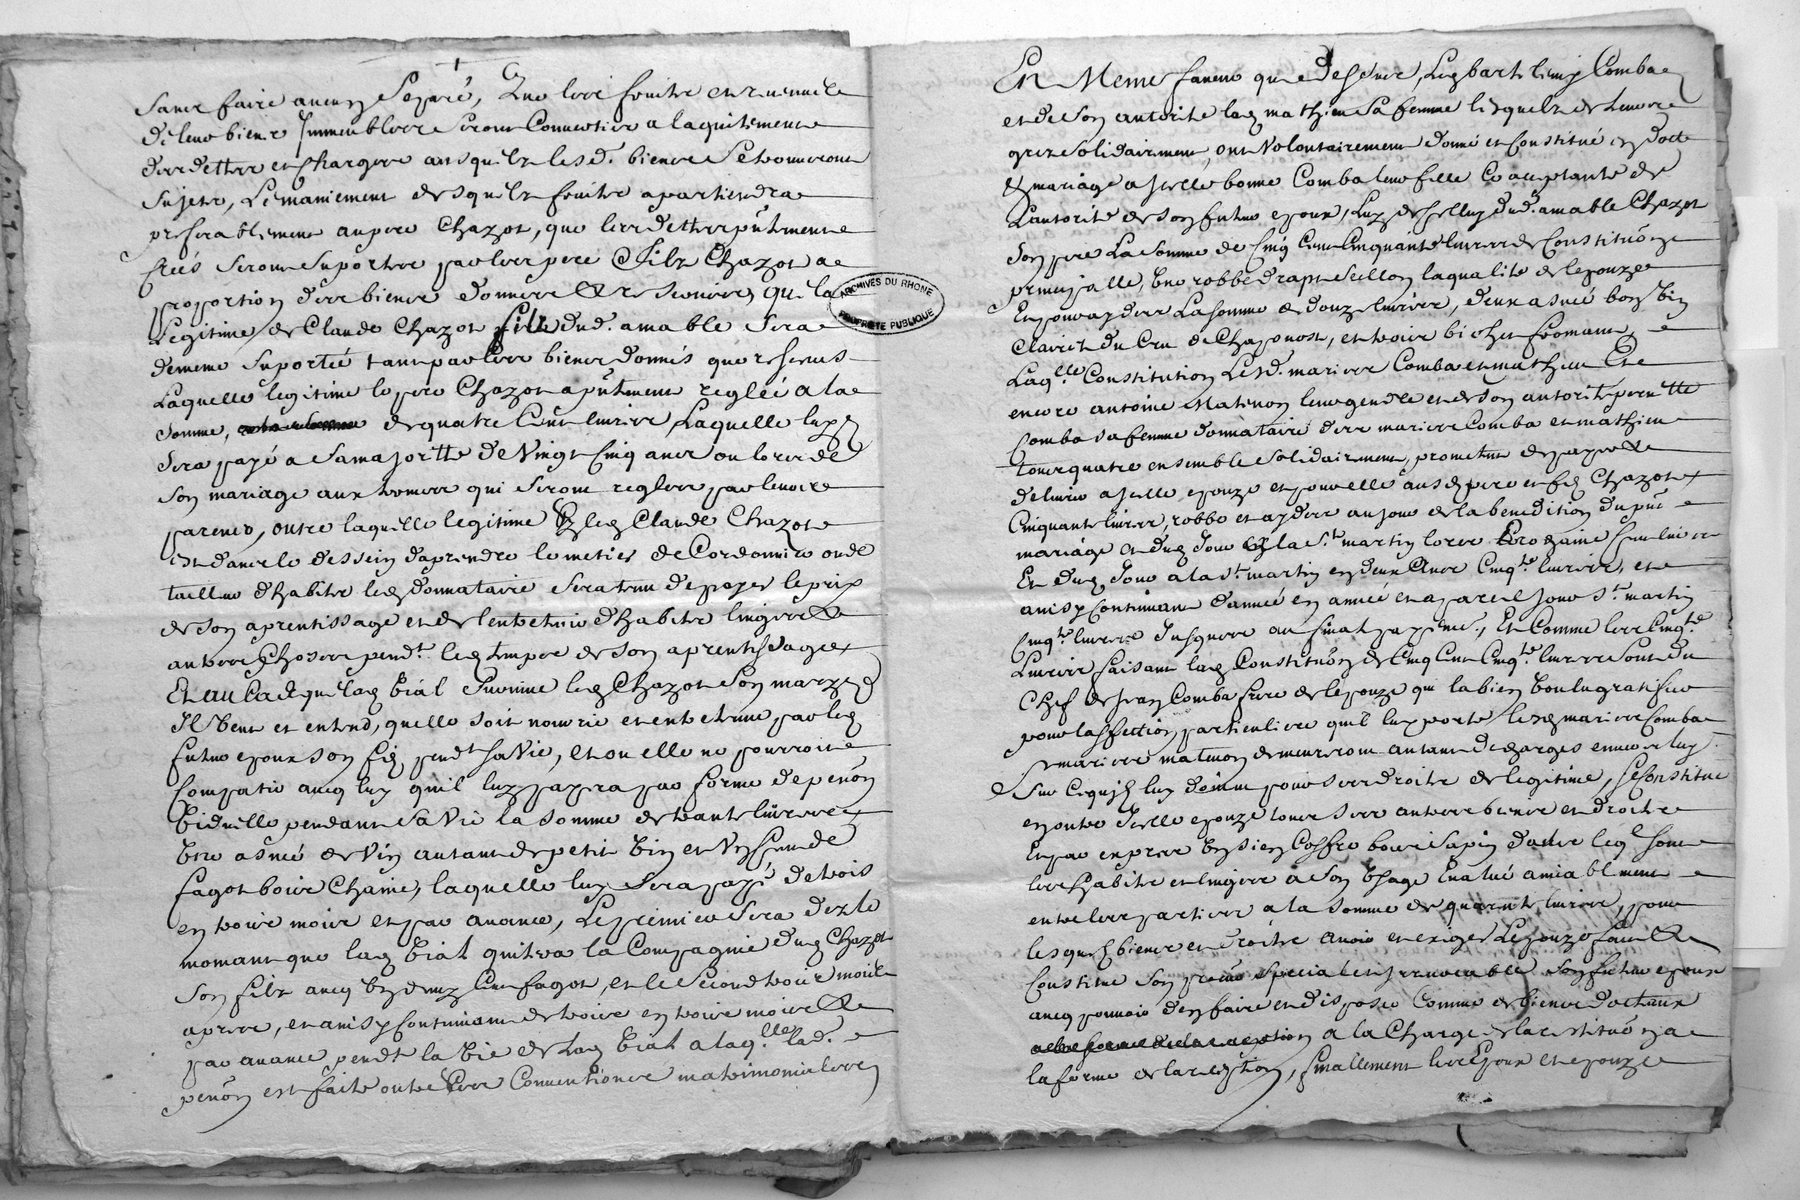 sans faire aucun separé, Que les fruits et revenus
de leur biens Immeubles seront Convertis a laquitement
des dettes et charges ausquels lesd. biens se trouveront
sujets, Le maniement desquels fruits apartiendra
preferablement au pere Chazot, que les dettes
seront suportés par les pere & fils Chazot a
proportion des biens donnés & reservés, que la
Legitime de Claude Chazot fils dud. amable sera
de meme suporté tant par les biens donnés que reservés
Laquelle legitime le pere Chazot a reglée a la
somme, de quatre Cent livres, Laquelle luy
sera payé a sa majorité de vingt Cinq ans ou lors de
son mariage aux termes qui seront reglés par leurs
parents, outre laquelle legitime led. Claude Chazot
est dans le dessein daprendre le metier de Cordonnier ou de
tailleur dhabits led. donnataire sera tenu de payer le prix
de son aprentissage et de lentretenir dhabits linges &
autres choses pend.t led. temps de son aprentissage
Et au Cas que lad. Vial survive led. Chazot son mary
Il Veut et entend, quelle soit nourrie et entretenue par led.
futur epoux son fils pend.t sa Vie, et ou elle ne pourroit
Compatir avec luy quil luy payera par forme de pension
Viduelle pendant sa Vie la somme de trante livres
Une asnée de Vin autant de petit Vin et Un Cent de
fagot bois Chaine, laquelle luy sera payé de trois
en trois mois et par avance, Le premier sera dez le
moment que lad. Vial quitera la Compagnie dud. Chazot
son fils avec Un demy Cent fagot, et le second trois mois
apres, et ainsy Continuant de trois en trois mois &
par avance pendt la Vie de lad. Vial a laq.lle lad.
pension est faite outre les Conventions matrimonialles
En Meme faveur que dessus, Led. barthelemy Comba
et de son autorité lad. mathieu sa femme lesquels de leur
grez solidairement, ont Volontairement donné et Constitué en dotte
de mariage a Icelle bonne Comba leur fille Ce acceptante de
Lautorité de son futur epoux, luy de Celluy dud. amable Chazot
son pere La somme de Cinq Cent Cinquante livres de Constitution
principalle, Une robbe drap seillon la qualité de lepouze
Et pour aydes La somme de douze livres, deux asnée bon Vin
Clairet du Cru de Chaponost, et trois bichet fromant
Laq.lle Constitution Lesd. maries Comba et mathieu Et
encore antoine Matenon leur gendre et de son autorité pernette
Comba sa femme donnataire des maries Comba et mathieu
tous quatre ensemble solidairement, prometent de payer &
delivrer a Icelle epouze et pour elle aus. pere et fils Chazot
Cinquante livres, robbe et aydes au jour de la benediction du
mariage et dud. Jour a la St martin lors prochaine Cent livres
Et dud. Jour a la St. martin en deux Ans Cinq.te livres, et
ainsy Continuant dannée en année et a pareil Jour St. martin
Cinq.te livres Jusques au final payement, Et Comme les Cinq.te
Livres faisant lad. Constitution de Cinq Cent Cinq.te livres sont du
Chef de Jean Comba frere de lepouze qui la bien Voulu gratifier
pour laffection particuliere quil luy porte lesd. maries Comba
et maries matenon demeureront autant decharges envers luy
sur Ce quil luy doivent pour ses droits de legitime, se Constitue
en outre Icelle epouze tous ses autres biens et droits
Et par exprez Un sien Coffre bois sapin dans leq.l sont
les habits et linges a son Usage Evalué amiablement
entre les parties a la somme de quarante livres, pour
lesquels biens et droits avoir et exiger Lepouze fait &
Constitue son procur special et Irrevocable son futur epoux
avec pouvoir den faire et disposer Comme de biens dottaux
a la Charge de la restitution a
la forme de la reception, finallement les Epoux et epouze
ARCHIVES DU RHONE
PROPRIETE PUBLIQUE